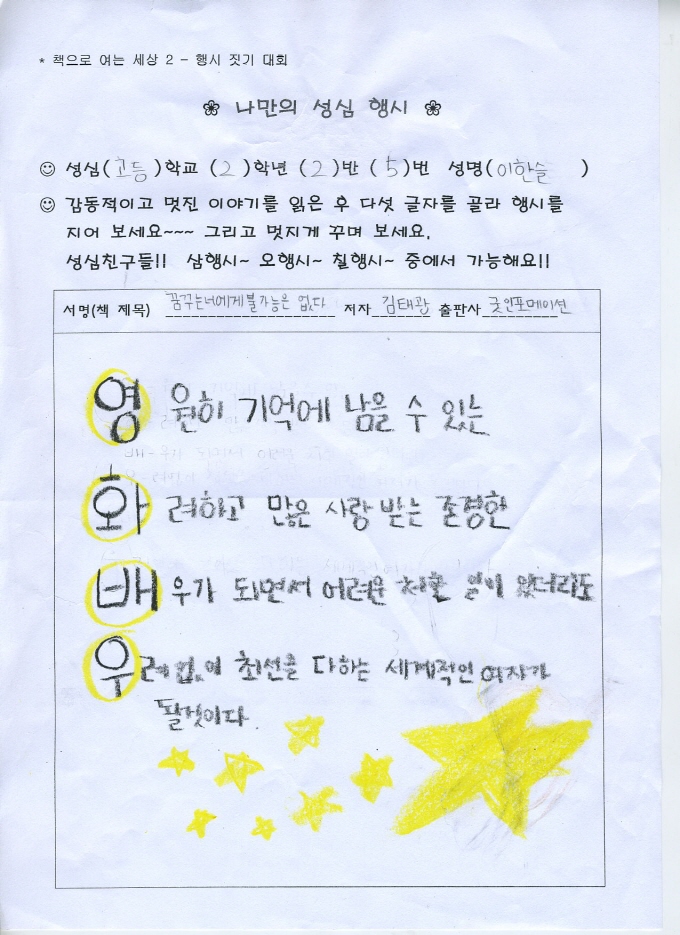 * 책으로 여는 세상 2 - 행시 짓기 대회
❀ 나만의 성심 행시 ❀
☺ 성심(고등)학교 (2)학년 (2)반 (5)번 성명(이한슬 )
☺ 감동적이고 멋진 이야기를 읽은 후 다섯 글자를 골라 행시를
지어 보세요~~~ 그리고 멋지게 꾸며 보세요.
성심친구들!! 삼행시~ 오행시~ 칠행시~ 중에서 가능해요!!
서명(책 제목) 꿈꾸는너에게불가능은 없다 저자 김태광 출판사 굿인포메이션
영 원히 기억에 남을 수 있는
화 려하고 많은 사랑 받는 존경한
배 우가 되면서 어려운 처한 일이 있더라도
우 려없이 최선을 다하는 세계적인 여자가
될것이다.